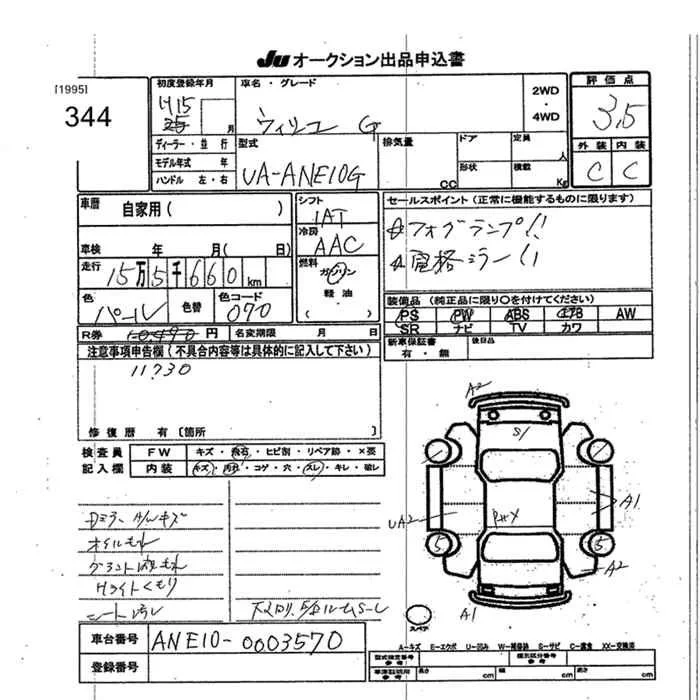 JU オークション出品申込書
[1995]
344
初度登録年月
H15
月
車名・グレード
ウィッシュ G
2WD
・
4WD
評価点
3.5
ディーラー・並行
モデル年式 年
ハンドル 左・右
型式
UA-ANE10G
排気量
CC
ドア
形状
定員
人
積載
Kg
外装 内装
C C
車歴 自家用( )
車検 年 月( 日)
走行 15万5千660km
色 パール
色替
色コード 070
シフト
IAT
冷房
AAC
燃料
ガソリン
軽油
セールスポイント(正常に機能するものに限ります)
フォグランプ!!
電格ミラー!!
装備品(純正品に限り○を付けてください)
PS PW ABS エアB AW
SR ナビ TV カワ
R券 10,490円
名変期限 月 日
新車保証書
有・無
後日品
注意事項申告欄(不具合内容等は具体的に記入して下さい)
11730
修復歴 有〔箇所 〕
検査員
記入欄
FW キズ・飛石・ヒビ割・リペア跡・×要
内装 キズ・汚れ・コゲ・穴・スレ・キレ・破レ
A2
S1
UA2
A1
A2
A1
5
5
Dミラー A/Wキズ
オイルもれ
Hライトくもり
シート汚れ
スペア
A-キズ E-エクボ U-凹み W-補修跡 S-サビ C-腐食 XX-交換済
車台番号 ANE10-0003570
登録番号
長さ cm 幅 cm 高さ cm